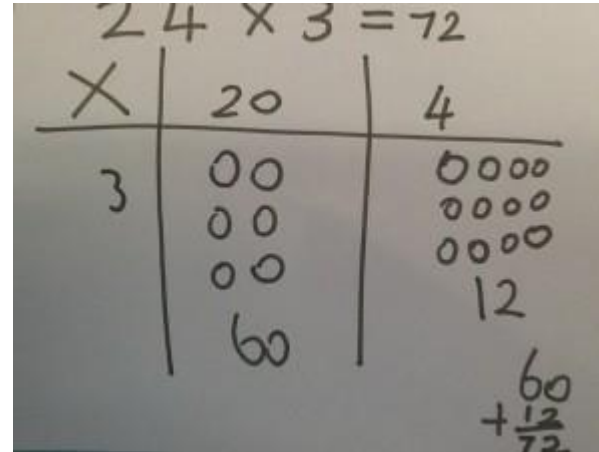 24 × 3 = 72
× 20 4
3 00 0000
00 0000
00 0000
60 12
60
+12
72